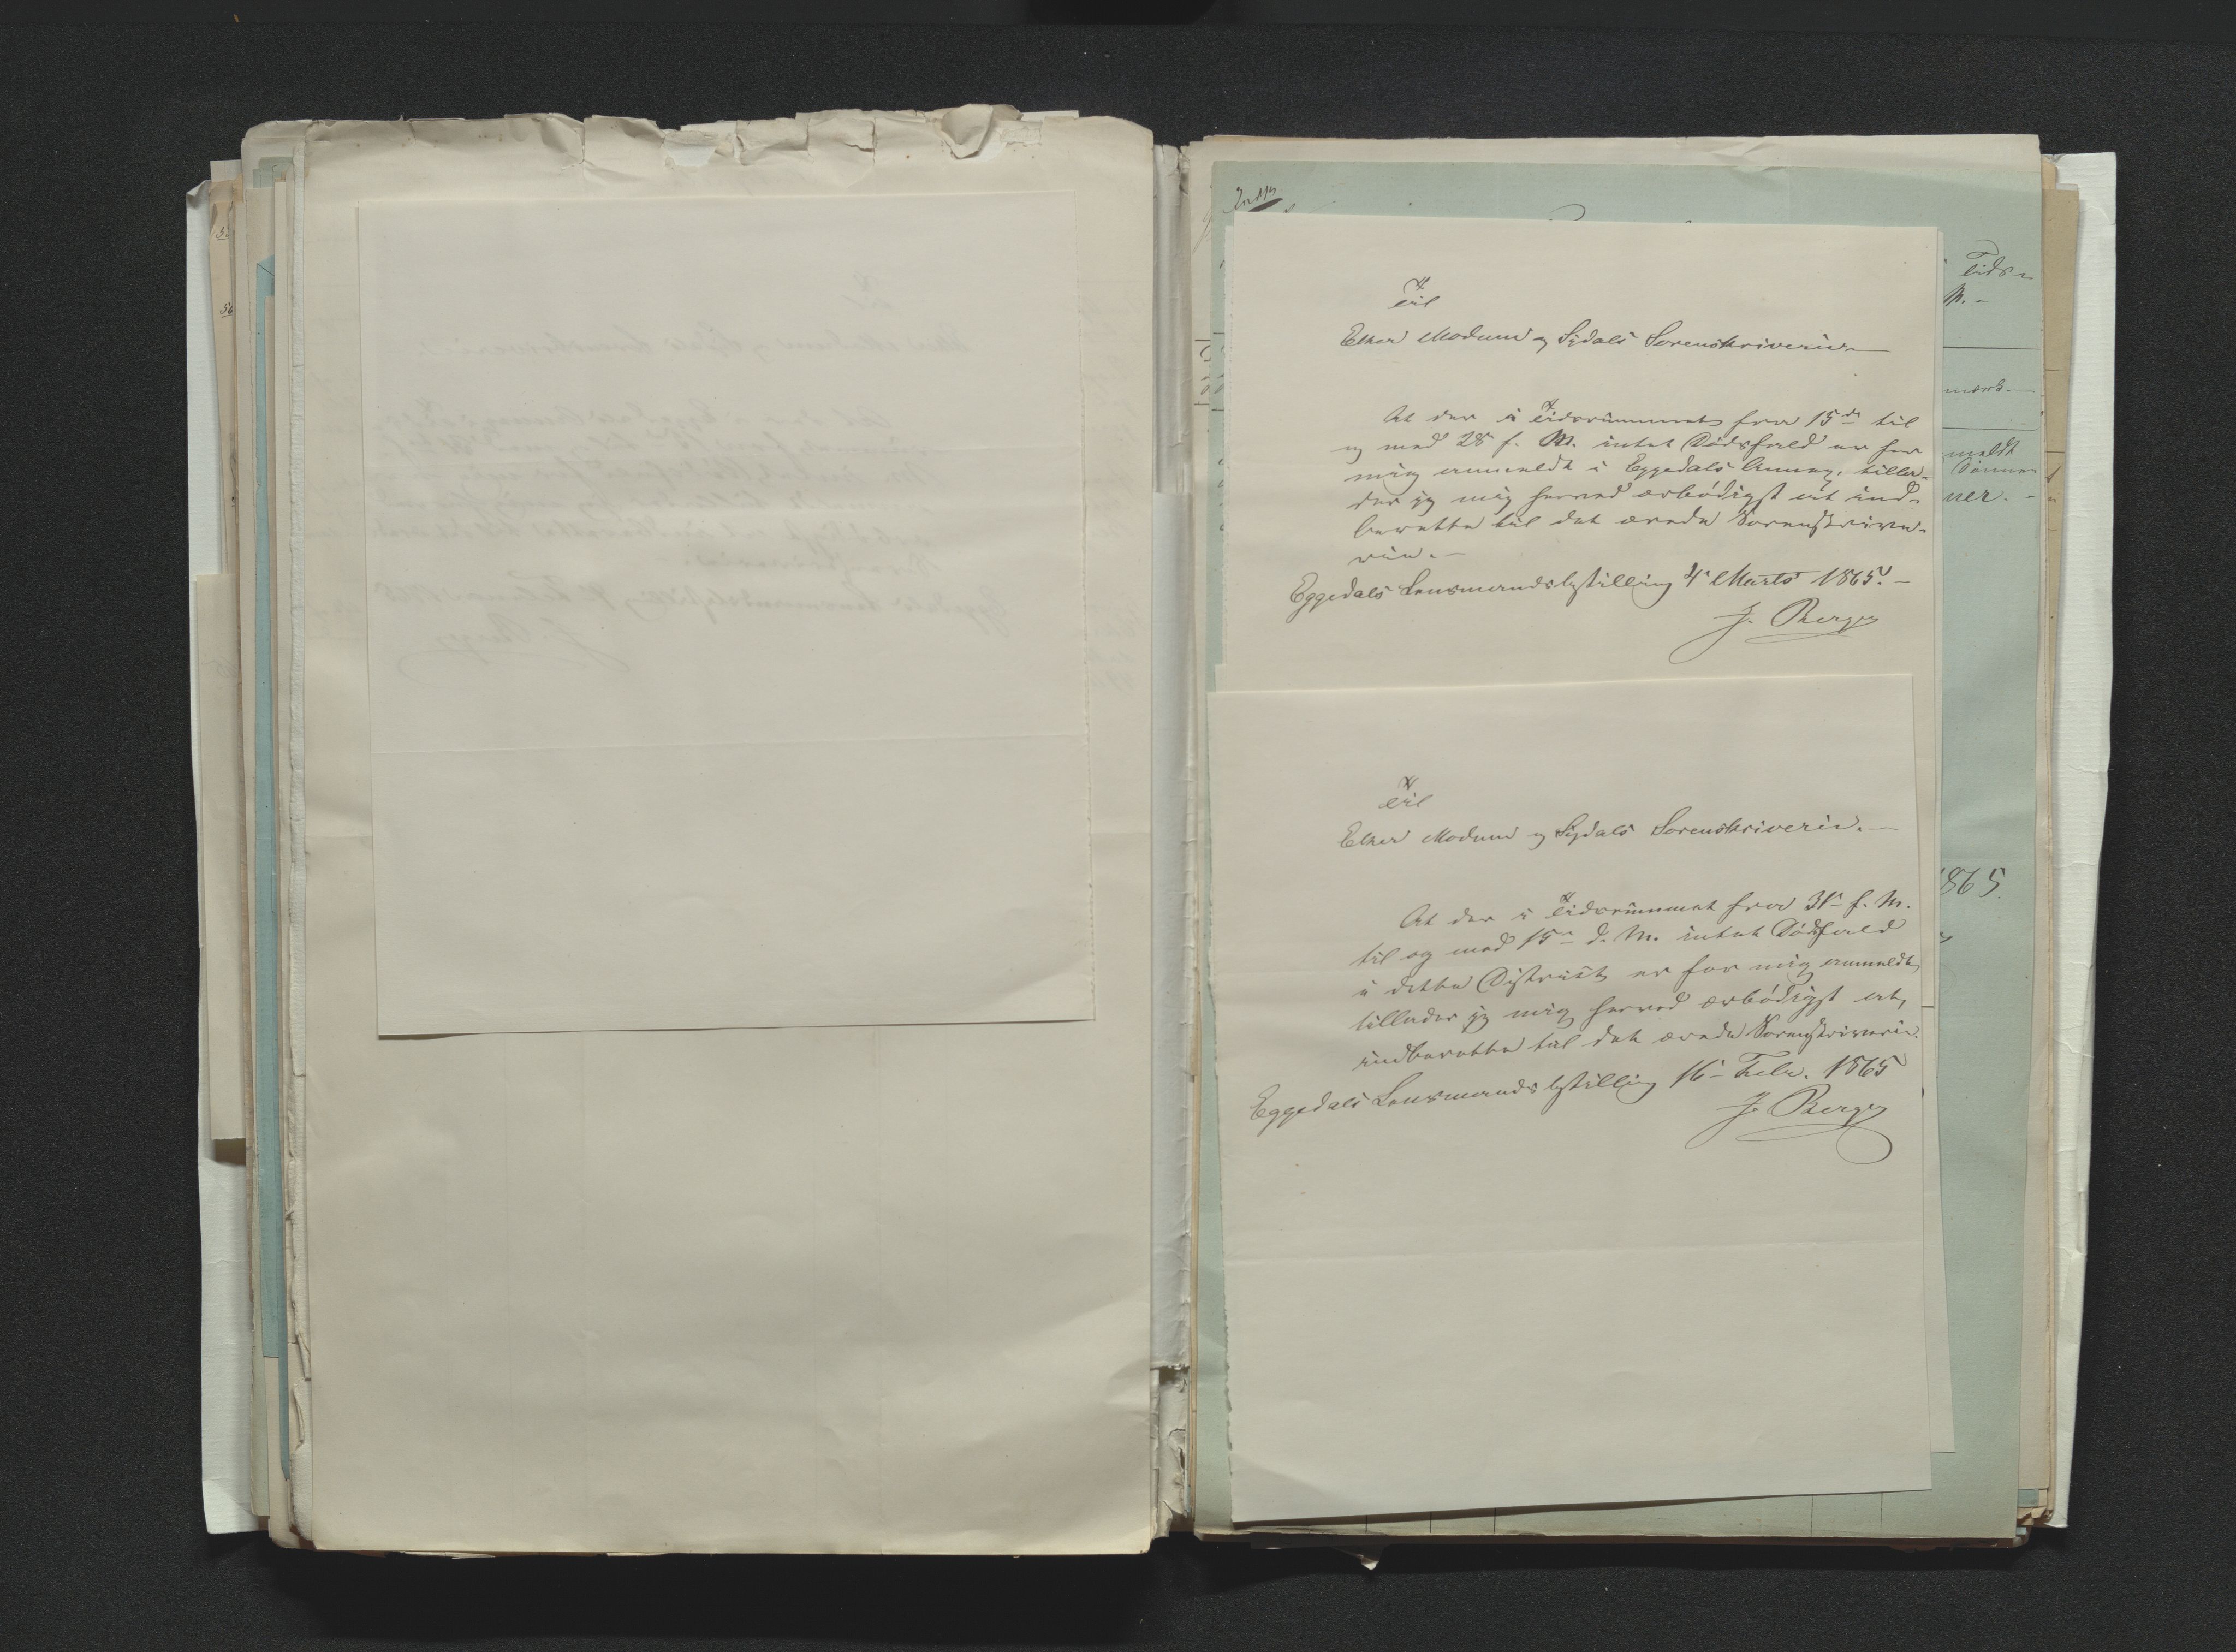 Til
Eker Modum og Sigdals Sorenskriverie. —
At der i Tidsrummet fra 15de til
og med 28 f. M. intet Dødsfald er for
mig anmeldt i Eggedals Annex, tilla-
der jeg mig herved ærbødigst at ind-
berette til det ærede Sorenskrive-
rie. —
Eggedals Lensmandsbestilling 4 Marts 1865. —
J. Berger
Til
Eker Modum og Sigdals Sorenskriverie. —
At der i Tidsrummet fra 31 f. M.
til og med 15 d. M. intet Dødsfald
i dette District er for mig anmeldt,
tillader jeg mig herved ærbødigst at
indberette til det ærede Sorenskriverie.
Eggedals Lensmandsbestilling 16 Febr. 1865
J. Berger
Tids-
M. -
meldt
ner. -
1865.